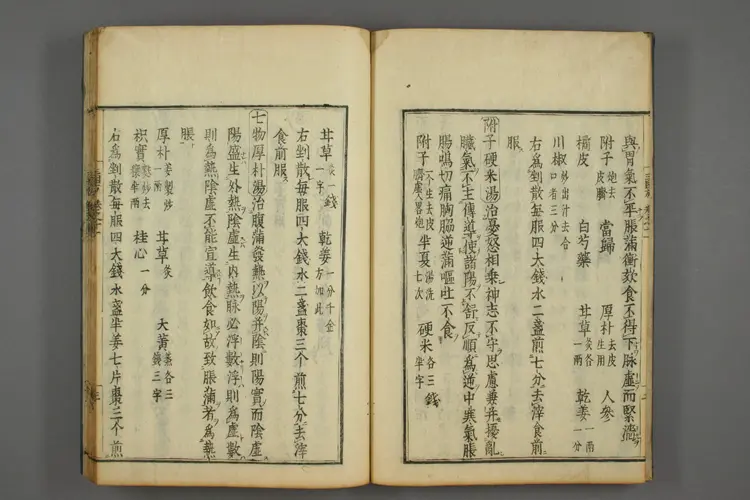 與胃氣不平脹滿衝欬食不得下脉虛而緊濇
附子 炮去皮臍 當歸 厚朴 去皮生用 人參
橘皮 白芍藥 甘草 炙各一兩 乾姜 一兩一分
川椒 炒出汗去合口者三分
右為剉散每服四大錢水二盞煎七分去滓食前
服
附子硬米湯治憂怒相乗神志不守思慮兼并擾亂
臟氣不主傳導使諸陽不舒反順為逆中寒氣脹
腸鳴切痛胸脇逆滿嘔吐不食
附子 不生去皮臍 半夏 湯洗七次 硬米 各三錢半字
甘草 炙一錢一字 乾姜 一分千金方加此
右剉散每服四大錢水二盞棗三个煎七分去滓
食前服
七物厚朴湯治腹滿發熱以陽并陰則陽實而陰虛
陽盛生外熱陰虛生内熱脉必浮數浮則為虛數
則為熱陰虛不能宣導飲食如故致脹滿若為熱
脹
厚朴 姜製炒一兩 甘草 炙 大黄 蒸各三錢三字
枳實 麩炒去穰半兩 桂心 一分
右為剉散每服四大錢水盞半姜七片棗三个煎